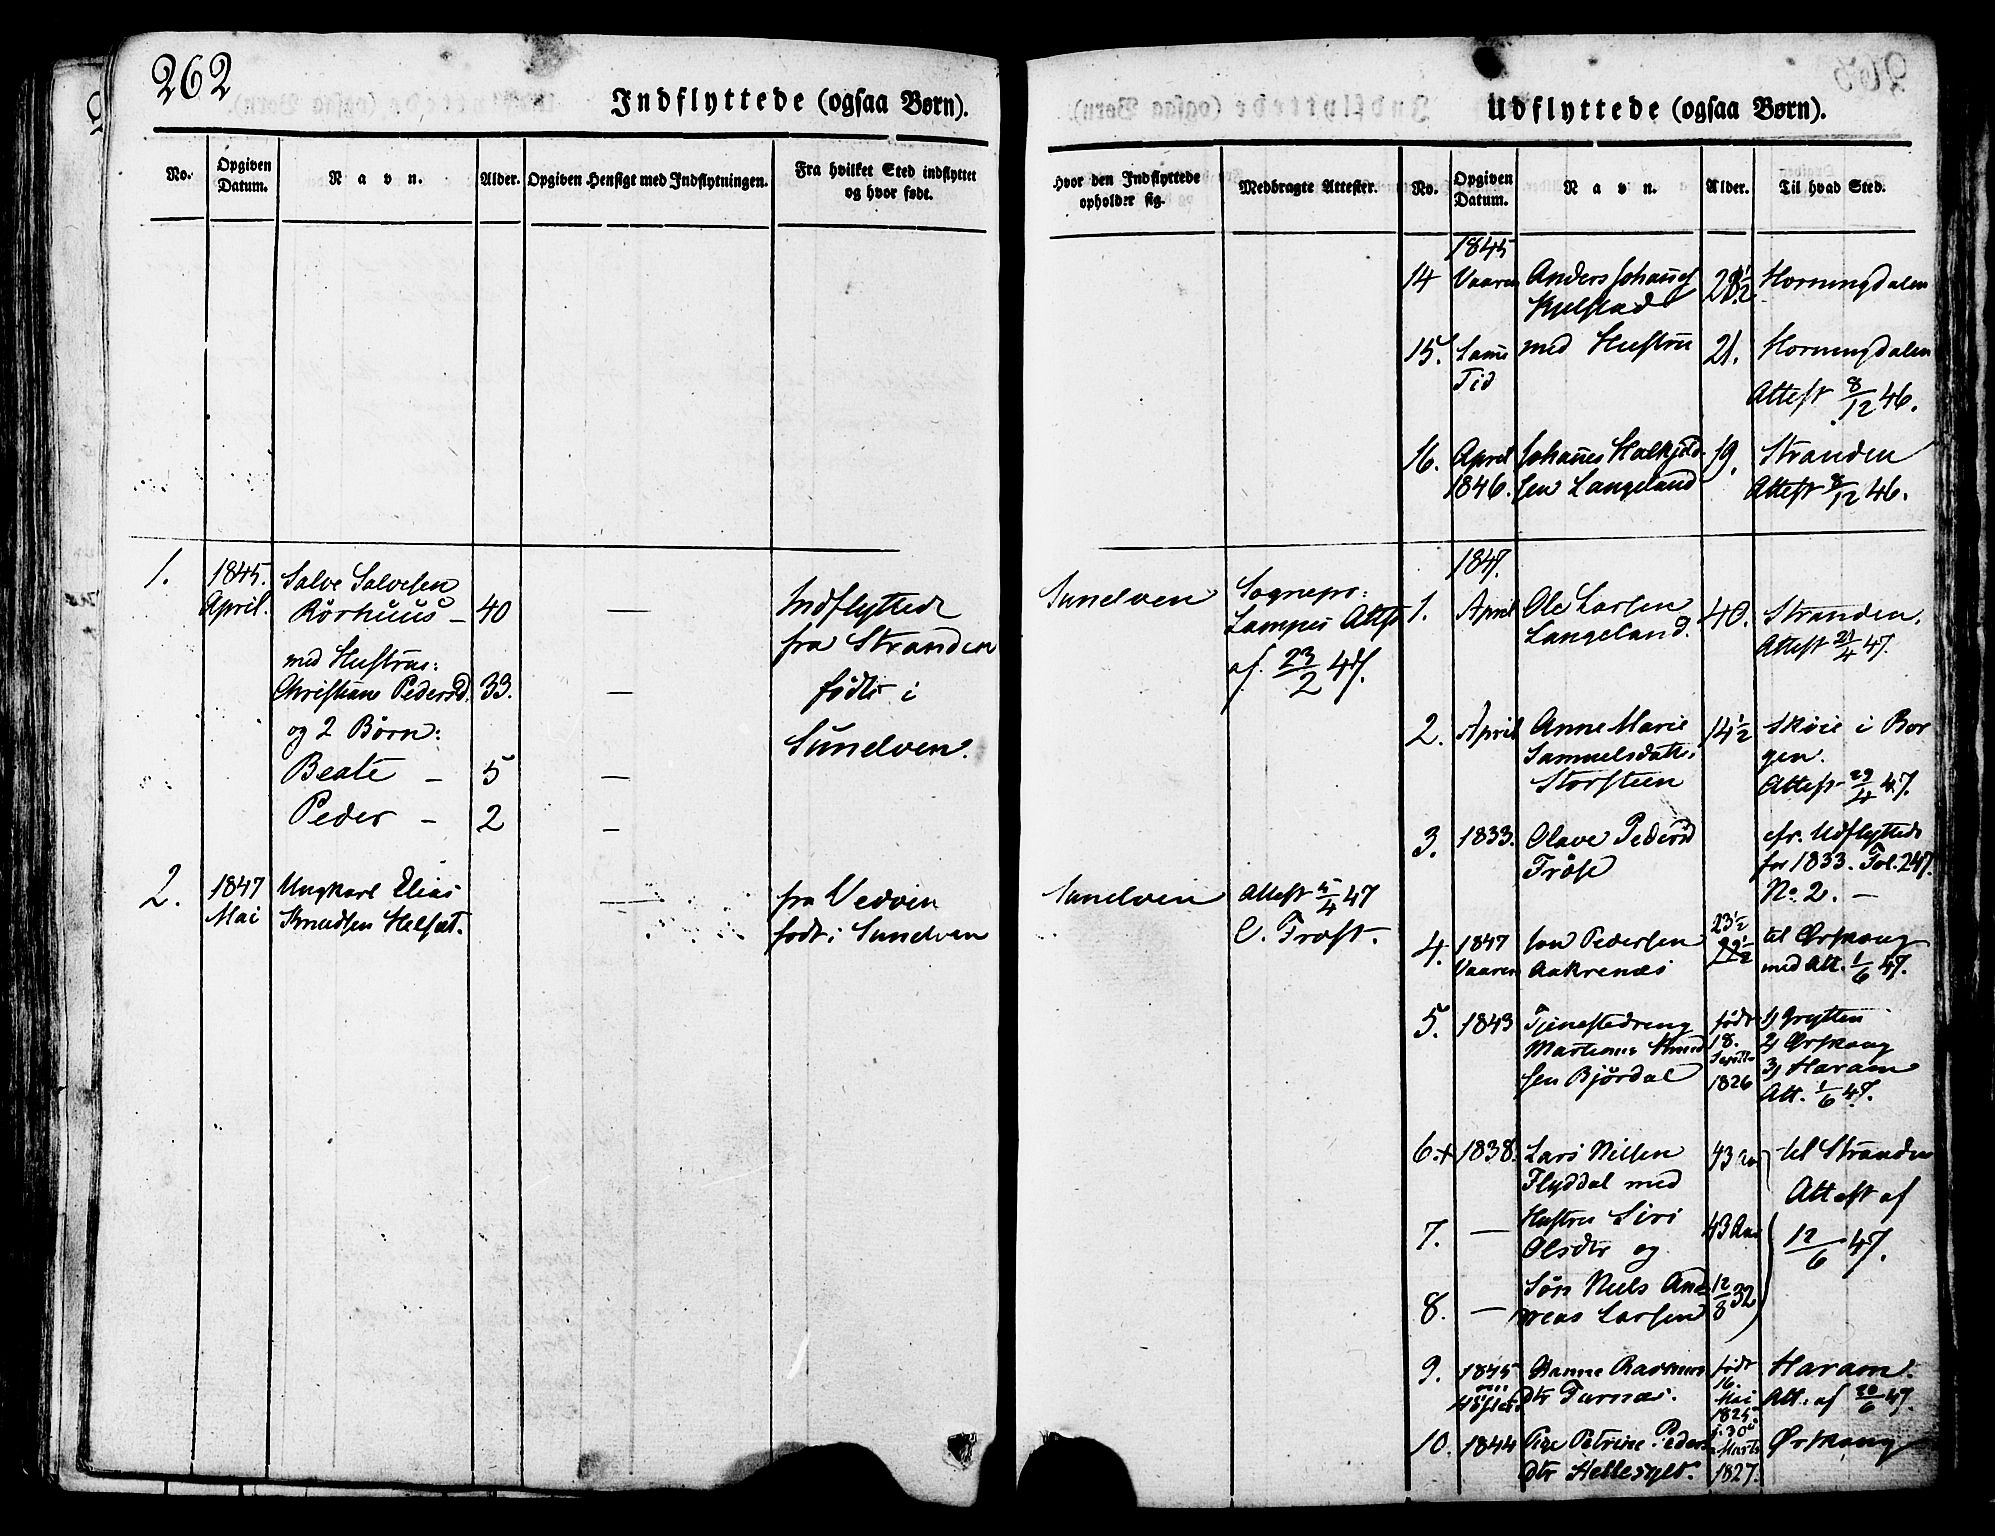 262
Indflyttede (ogsaa Børn).
No.
Opgiven Datum.
Navn.
Alder.
Opgiven Hensigt med Indflytningen.
Fra hvilket Sted indflyttet og hvor født.
1.
1845.
April.
Salve Salvesen
Rørhuus – 40 —
med Hustrue:
Christiane Pedersd. 33. —
og 2 Børn:
Beate – 5 —
Peder – 2 –
Indflyttede
fra Stranden
født i
Sunelven.
2.
1847
Mai
Ungkarl Elias
Knudsen Helset.
—
fra Vedøen
født i Sunelven
Udflyttede (ogsaa Børn).
Hvor den Indflyttede opholder sig.
Medbragte Attester.
No.
Opgiven Datum.
Navn.
Alder.
Til hvad Sted.
Sunelven
Sognepr:
Lampes Attst
af. 23/2 47.
Sunelven
Attest 5/4 47
C. Frost.
1845
14 Vaaren Anders Johannes 28½ Horningdalen
15. Samme Tid med Hustru 21. Horningdalen
Attest 8/12 46.
16. April Johannes 19. Stranden
1846. sen Langeland Attest 8/12 46.
1847.
1. April Ole Larsen 40. Stranden.
Langeland. Attest 21/4 47.
2. April Anne Marie 14½ Skøie i Ber
Samuelsdatter gen.
Storsteen Attest 29/4 47.
3. 1833. Olave Pedersd cfr. Udflyttede
Frøse for 1833. Fol. 247.
No. 2. —
4. 1847 Jon Pedersen 23½ til Ørskoug
Vaaren Aakrenæs 22½ med Att. 1/6 47.
5. 1843 Tjenestedreng født 1) Grytten
Martinus Knud 18. 2) Ørskoug
sen Bjørdal Septbr 1826 3) Haram
Att. 1/6 47.
6.+ 1838. Lars Nilsen 43 Aar til Stranden
Flyddal med Attest af
7. — Hustru Siri 43 Aar 12/6 47.
Olsdtr og
8. — Søn Niels And 12/8 32
reas Larsen
9. 1845 Hanne Rasmus født Haram.
dtr Furnæs. 16. Mai 1825. Att. af 20/6 47.
10. 1844 Pige Petrine Peders f. 30 Ørskoug
dtr Hellesylt. Marts 1827.